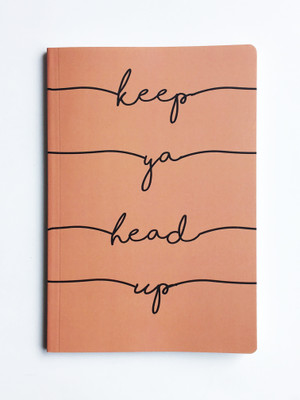 keep
ya
head
up